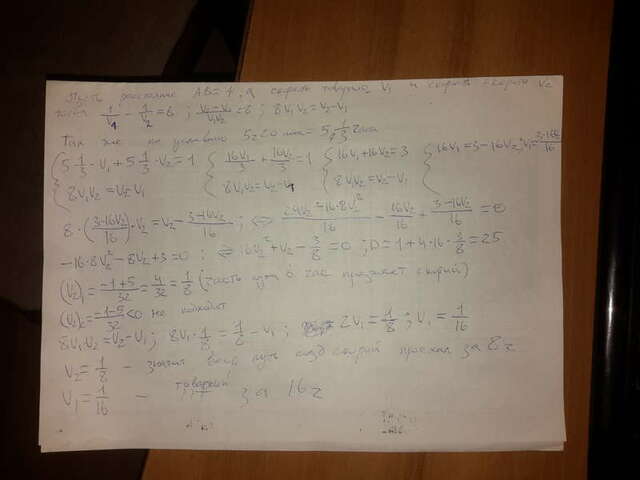 Пусть расстояние AB=1, а скорость товарного V₁ и скорость скорого V₂
тогда 1/V₁ - 1/V₂ = 8 ; (V₂-V₁)/(V₁V₂) = 8 ; 8V₁V₂ = V₂-V₁
Так же по условию 5ч 20 мин = 5 1/3 часа
{ 5 1/3 · V₁ + 5 1/3 · V₂ = 1 { 16V₁/3 + 16V₂/3 = 1 { 16V₁+16V₂ = 3 { 16V₁ = 3-16V₂; V₁ = (3-16V₂)/16
8V₁V₂ = V₂-V₁ 8V₁V₂ = V₂-V₁ 8V₁V₂ = V₂-V₁
8·((3-16V₂)/16)·V₂ = V₂ - (3-16V₂)/16 ; ⇔ (24V₂-16·8V₂²)/16 - 16V₂/16 + (3-16V₂)/16 = 0
-16·8V₂² - 8V₂ + 3 = 0 ; ⇔ 16V₂² + V₂ - 3/8 = 0 ; D = 1+4·16·3/8 = 25
(V₂)₁ = (-1+5)/32 = 4/32 = 1/8 (часть пути в час проезжает скорый)
(V₂)₂ = (-1-5)/32 < 0 не подходит
8V₁·V₂ = V₂-V₁ ; 8V₁·1/8 = 1/8 - V₁ ; 2V₁ = 1/8 ; V₁ = 1/16
V₂ = 1/8 - значит весь путь поезд скорый проехал за 8ч
V₁ = 1/16 - товарный за 16ч